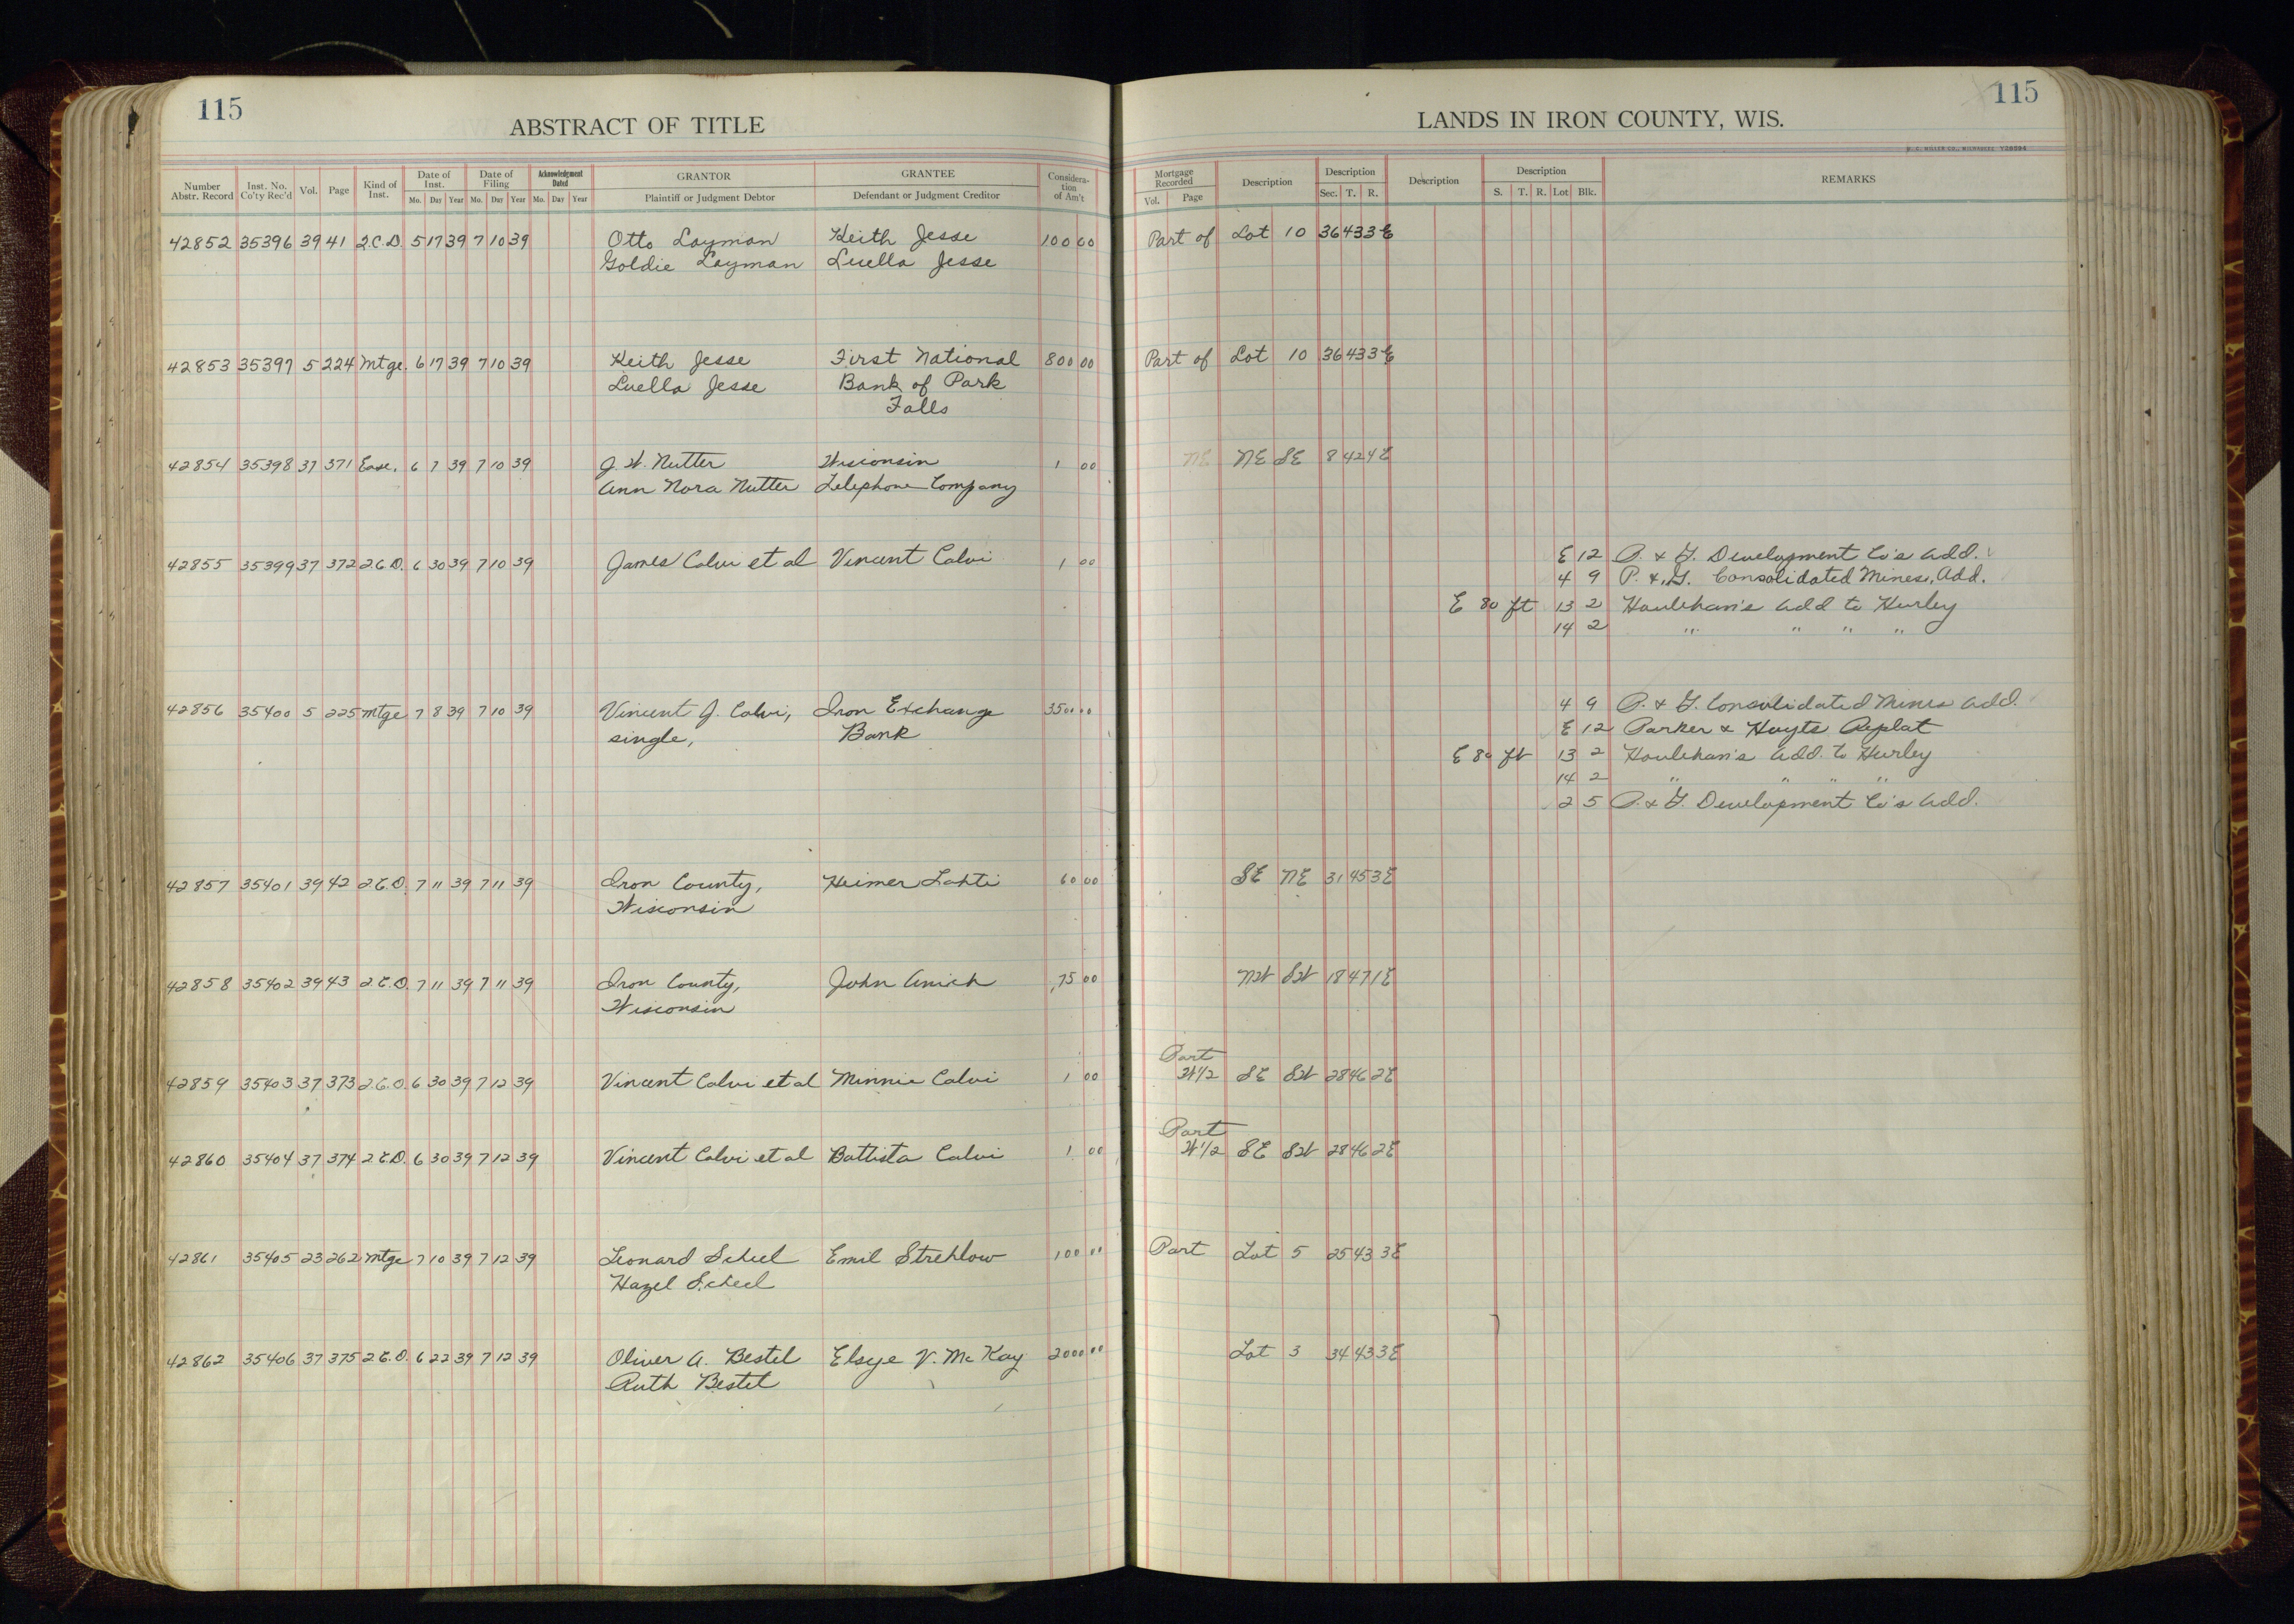 115
ABSTRACT OF TITLE
Number Abstr. Record Inst. No. Co'ty Rec'd Vol. Page Kind of Inst. Date of Inst. Mo. Day Year Date of Filing Mo. Day Year Acknowledgment Dated Mo. Day Year GRANTOR Plaintiff or Judgment Debtor GRANTEE Defendant or Judgment Creditor Consideration of Am't
42852 35396 39 41 Q.C.D. 5 17 39 7 10 39 Otto Layman Keith Jesse 100 00
Goldie Layman Luella Jesse
42853 35397 5 224 Mtge. 6 17 39 7 10 39 Keith Jesse First National 800 00
Luella Jesse Bank of Park
Falls
42854 35398 37 371 Ease. 6 7 39 7 10 39 J. W. Nutter Wisconsin 1 00
Ann Nora Nutter Telephone Company
42855 35399 37 372 Q.C.D. 6 30 39 7 10 39 James Calvi et al Vincent Calvi 1 00
42856 35400 5 225 Mtge 7 8 39 7 10 39 Vincent J. Calvi, Iron Exchange 3500 00
single, Bank
42857 35401 39 42 Q.C.D. 7 11 39 7 11 39 Iron County, Heimer Lahti 60 00
Wisconsin
42858 35402 39 43 Q.C.D. 7 11 39 7 11 39 Iron County, John Anich 75 00
Wisconsin
42859 35403 37 373 Q.C.D. 6 30 39 7 12 39 Vincent Calvi et al Minnie Calvi 1 00
42860 35404 37 374 Q.C.D. 6 30 39 7 12 39 Vincent Calvi et al Battista Calvi 1 00
42861 35405 23 262 Mtge 7 10 39 7 12 39 Leonard Scheel Emil Strehlow 100 00
Hazel Scheel
42862 35406 37 375 Q.C.D. 6 22 39 7 12 39 Oliver A. Bestel Elsye V. McKay 2000 00
Ruth Bestel
115
LANDS IN IRON COUNTY, WIS.
Mortgage Recorded Vol. Page Description Description Sec. T. R. Description Description S. T. R. Lot Blk. REMARKS
Part of Lot 10 36 43 3E
Part of Lot 10 36 43 3E
NE NE SE 8 42 4E
E 12 P. & G. Development Co's Add.
4 9 P. & G. Consolidated Mines, Add.
E 80 ft 13 2 Houlehan's Add to Hurley
14 2 " " " "
4 9 P. & G. Consolidated Mines Add.
E 12 Parker & Hoyts Replat
E 80 ft 13 2 Houlehan's Add. to Hurley
14 2 " " " "
2 5 P. & G. Development Co's Add.
SE NE 31 45 3E
NW SW 18 47 1E
Part
W1/2 SE SW 28 46 2E
Part
W1/2 SE SW 28 46 2E
Part Lot 5 25 43 3E
Lot 3 34 43 3E